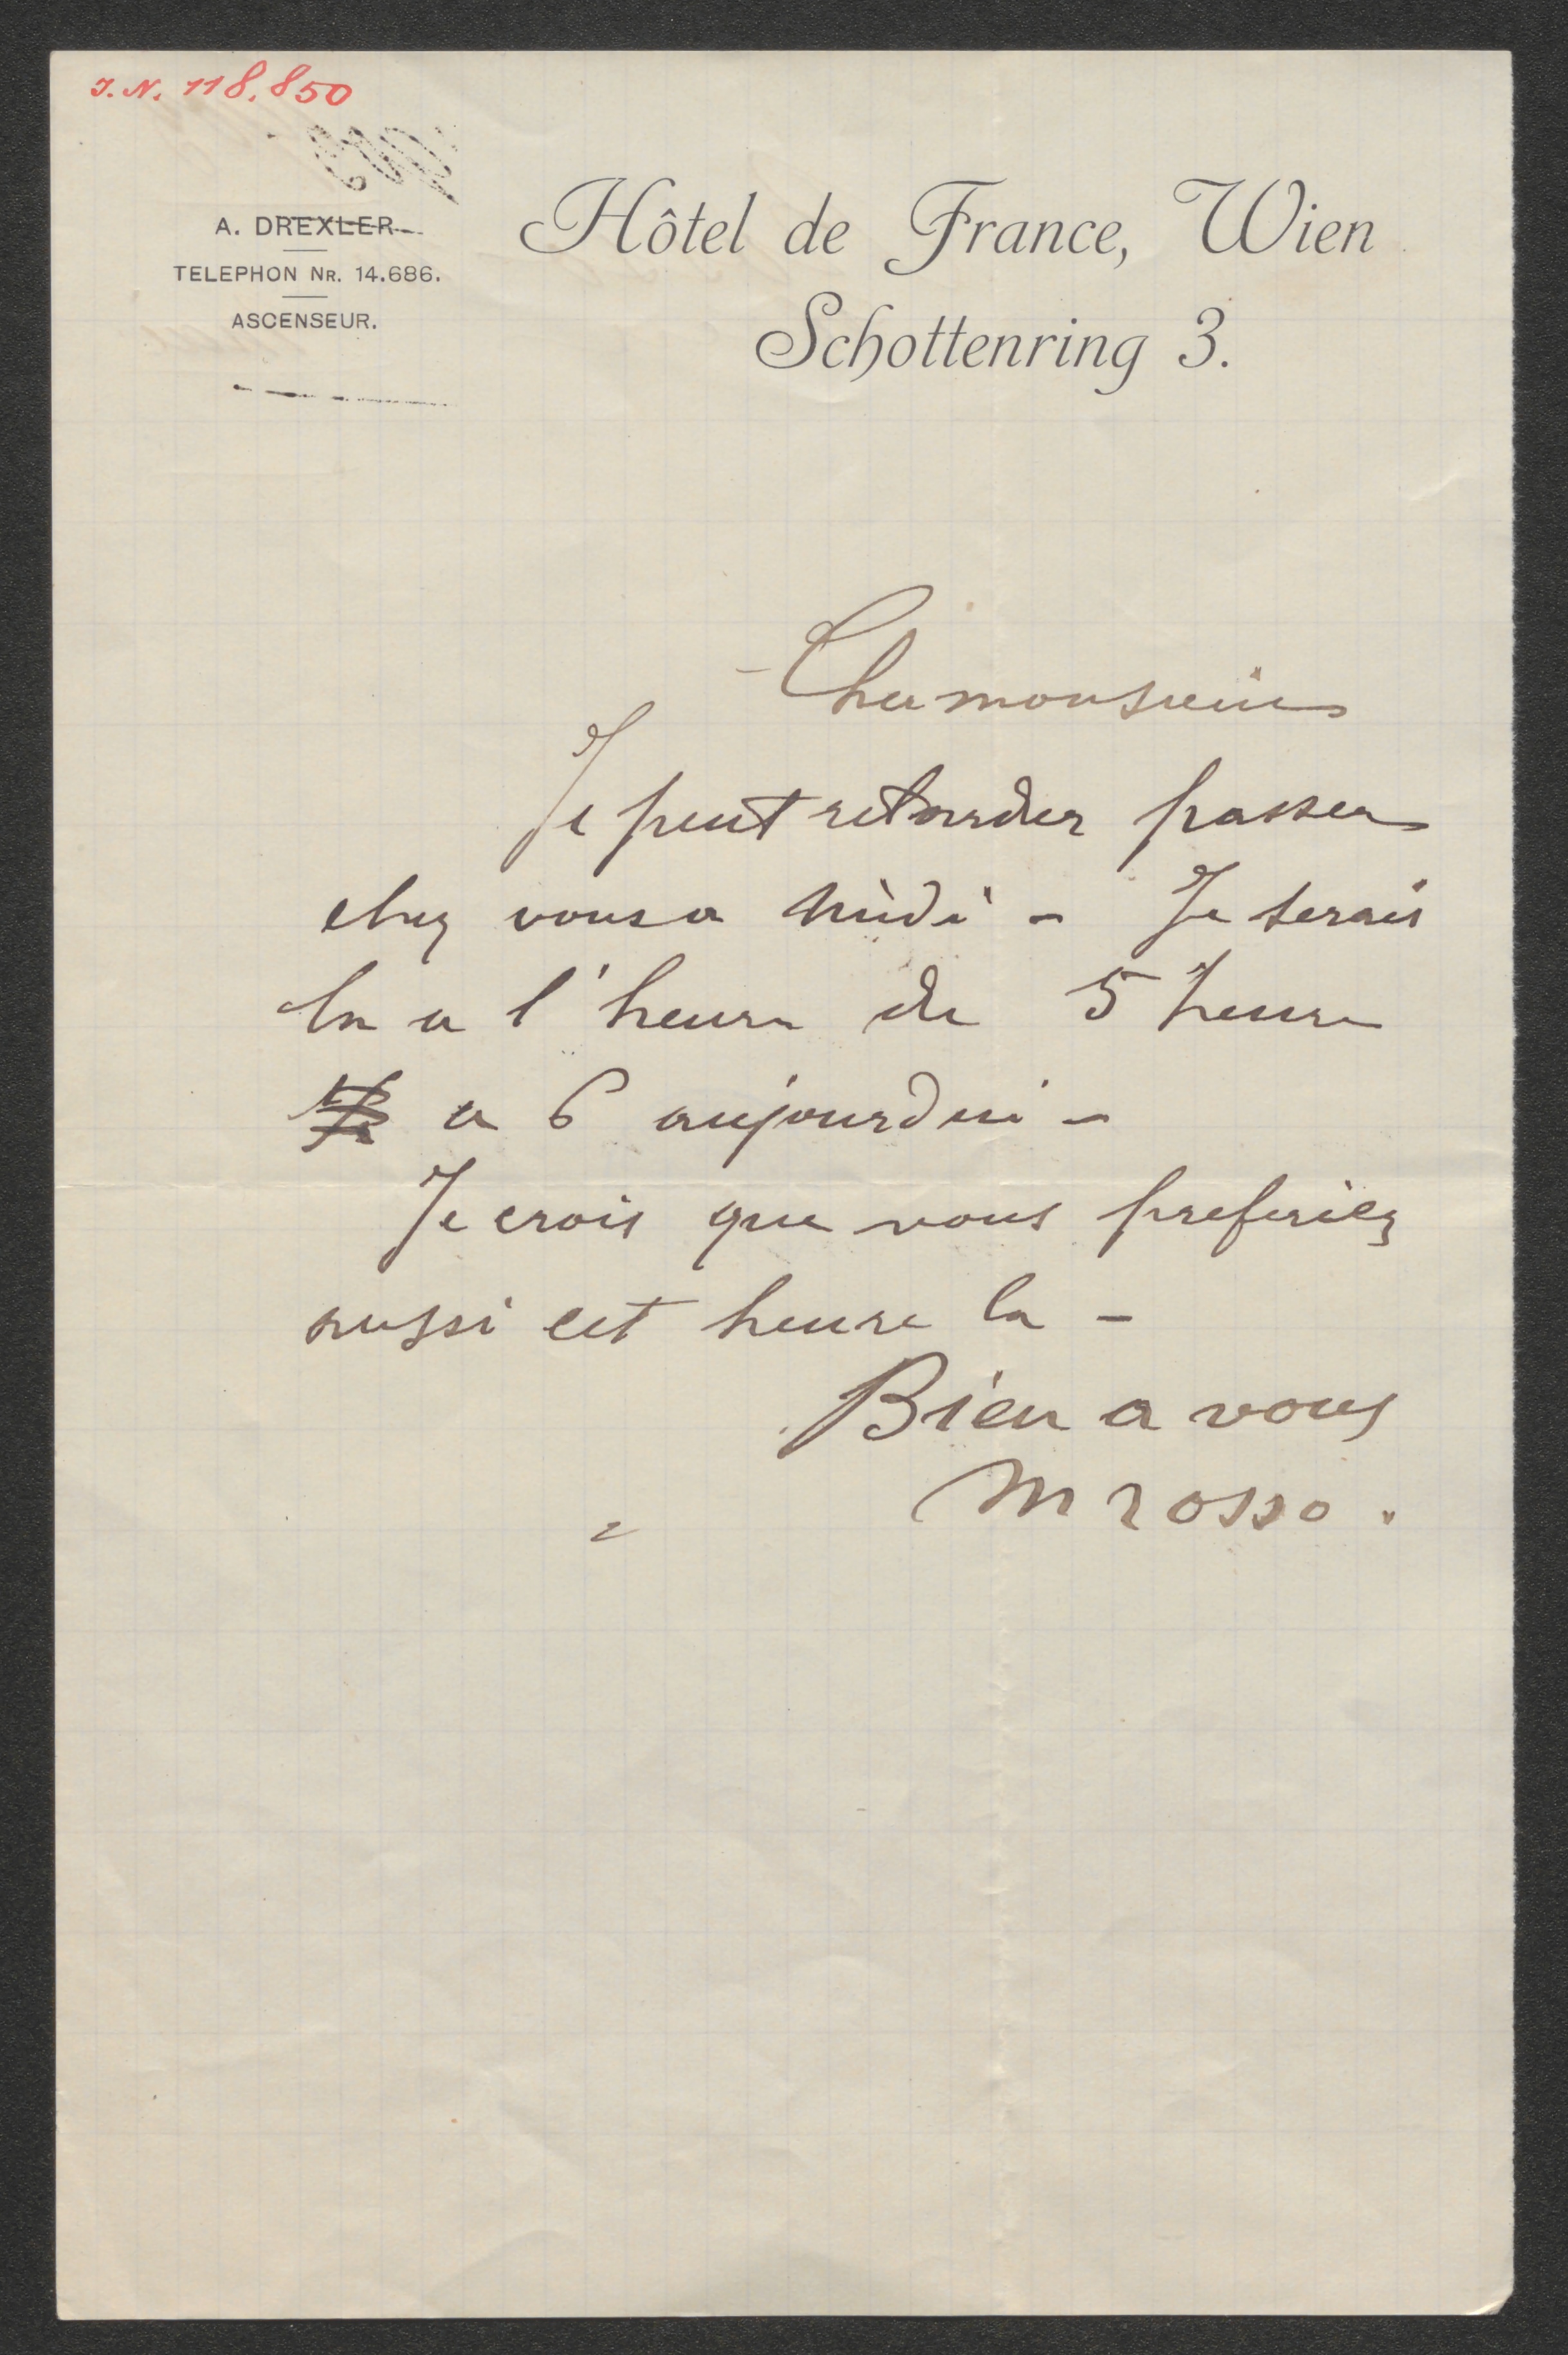 J. N. 118.850
A. DREXLER
TELEPHON NR. 14.686.
ASCENSEUR.
Hôtel de France, Wien
Schottenring 3.
Cher monsieur
Je peut retarder passer
chez vous a midi - Je serais
la a l'heure de 5 heure
a 6 aujourdui -
Je crois que vous preferiez
aussi cet heure la -
Bien a vous
M rosso.